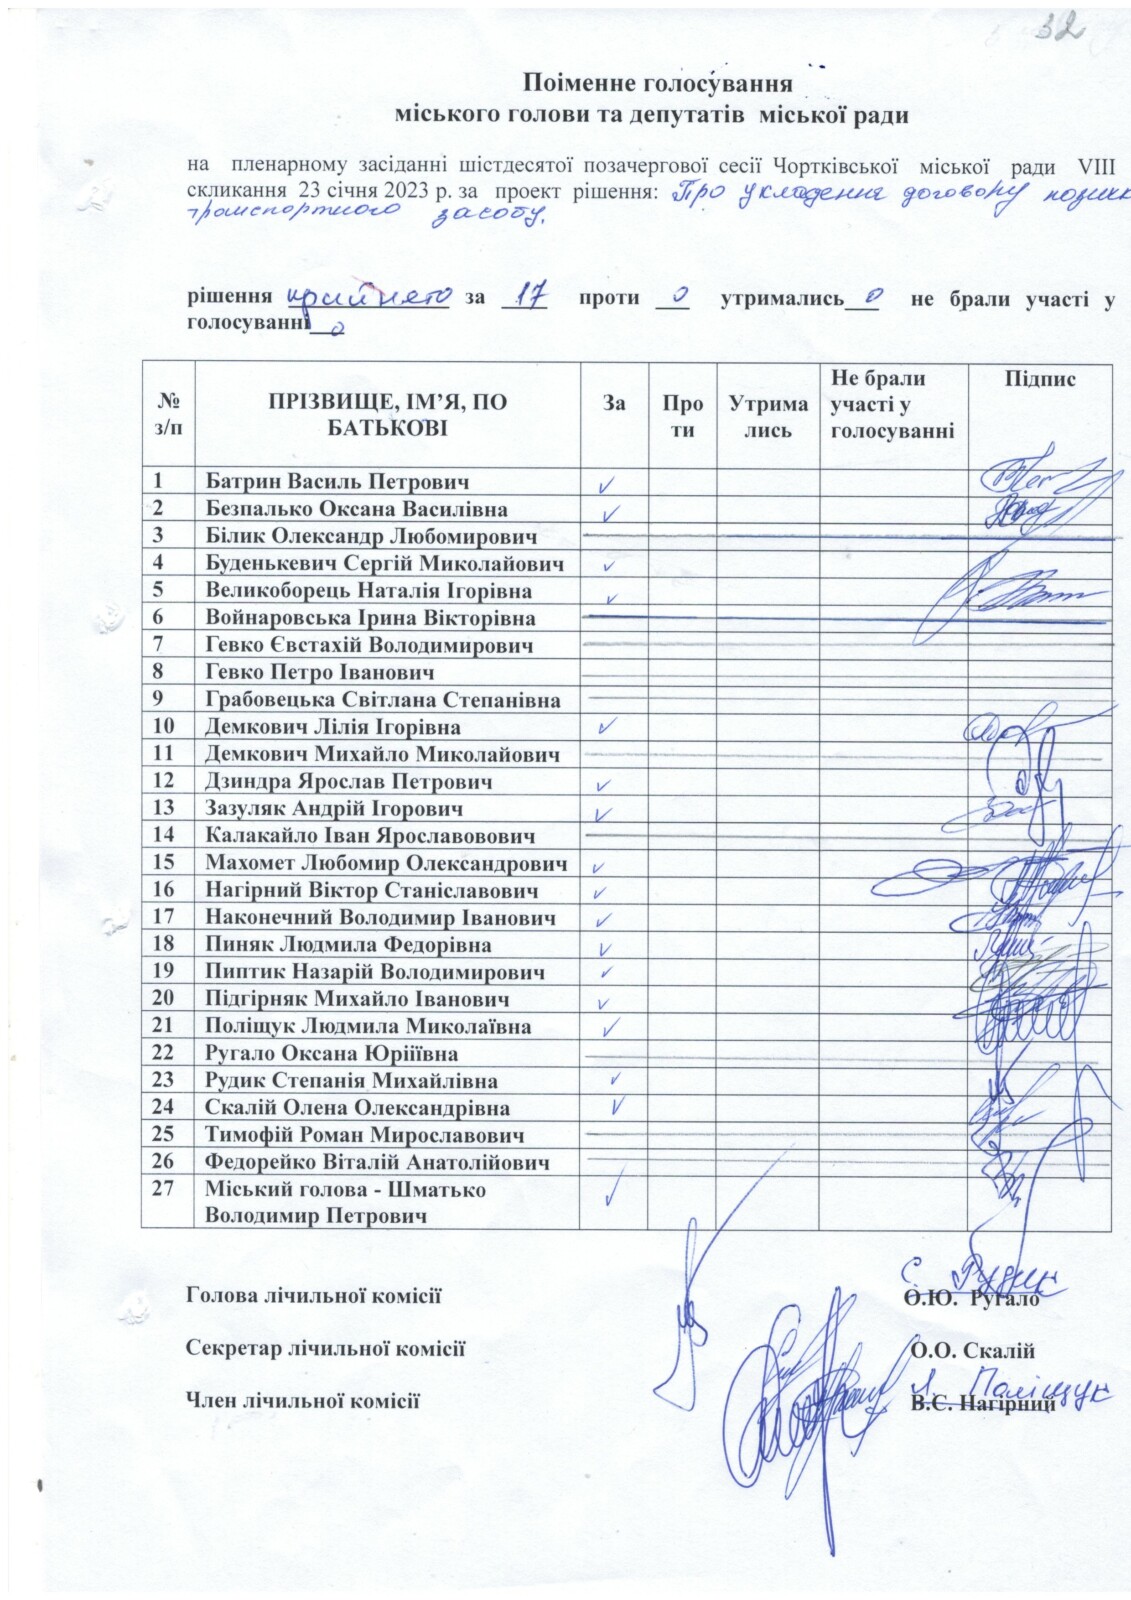 32
Поіменне голосування
міського голови та депутатів міської ради
на пленарному засіданні шістдесятої позачергової сесії Чортківської міської ради VIII
скликання 23 січня 2023 р. за проект рішення: Про укладення договору позичк
транспортного засобу.
рішення прийнято за 17 проти 0 утримались 0 не брали участі у
голосуванні 0
№ з/п ПРІЗВИЩЕ, ІМ’Я, ПО БАТЬКОВІ За Про ти Утрима лись Не брали участі у голосуванні Підпис
1 Батрин Василь Петрович ✓
2 Безпалько Оксана Василівна ✓
3 Білик Олександр Любомирович
4 Буденькевич Сергій Миколайович ✓
5 Великоборець Наталія Ігорівна ✓
6 Войнаровська Ірина Вікторівна
7 Гевко Євстахій Володимирович
8 Гевко Петро Іванович
9 Грабовецька Світлана Степанівна
10 Демкович Лілія Ігорівна ✓
11 Демкович Михайло Миколайович
12 Дзиндра Ярослав Петрович ✓
13 Зазуляк Андрій Ігорович ✓
14 Калакайло Іван Ярославовович
15 Махомет Любомир Олександрович ✓
16 Нагірний Віктор Станіславович ✓
17 Наконечний Володимир Іванович ✓
18 Пиняк Людмила Федорівна ✓
19 Пиптик Назарій Володимирович ✓
20 Підгірняк Михайло Іванович ✓
21 Поліщук Людмила Миколаївна ✓
22 Ругало Оксана Юріїївна
23 Рудик Степанія Михайлівна ✓
24 Скалій Олена Олександрівна ✓
25 Тимофій Роман Мирославович
26 Федорейко Віталій Анатолійович
27 Міський голова - Шматько ✓
Володимир Петрович
С. Рудик
Голова лічильної комісії О.Ю. Ругало
Секретар лічильної комісії О.О. Скалій
Л. Поліщук
Член лічильної комісії В.С. Нагірний